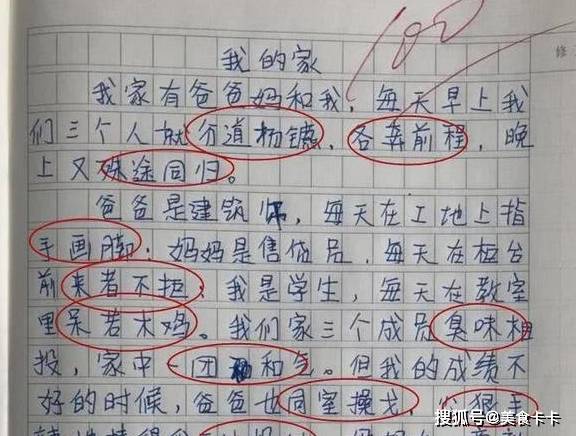 100
我的家
我家有爸爸妈和我，每天早上我
们三个人就分道扬镳，各奔前程，晚
上又殊途同归。
爸爸是建筑师，每天在工地上指
手画脚；妈妈是售货员，每天在柜台
前来者不拒；我是学生，每天在教室
里呆若木鸡。我们家三个成员臭味相
投，家中一团和气。但我的成绩不
好的时候，爸爸也同室操戈，心狠手
修
搜狐号@美食卡卡